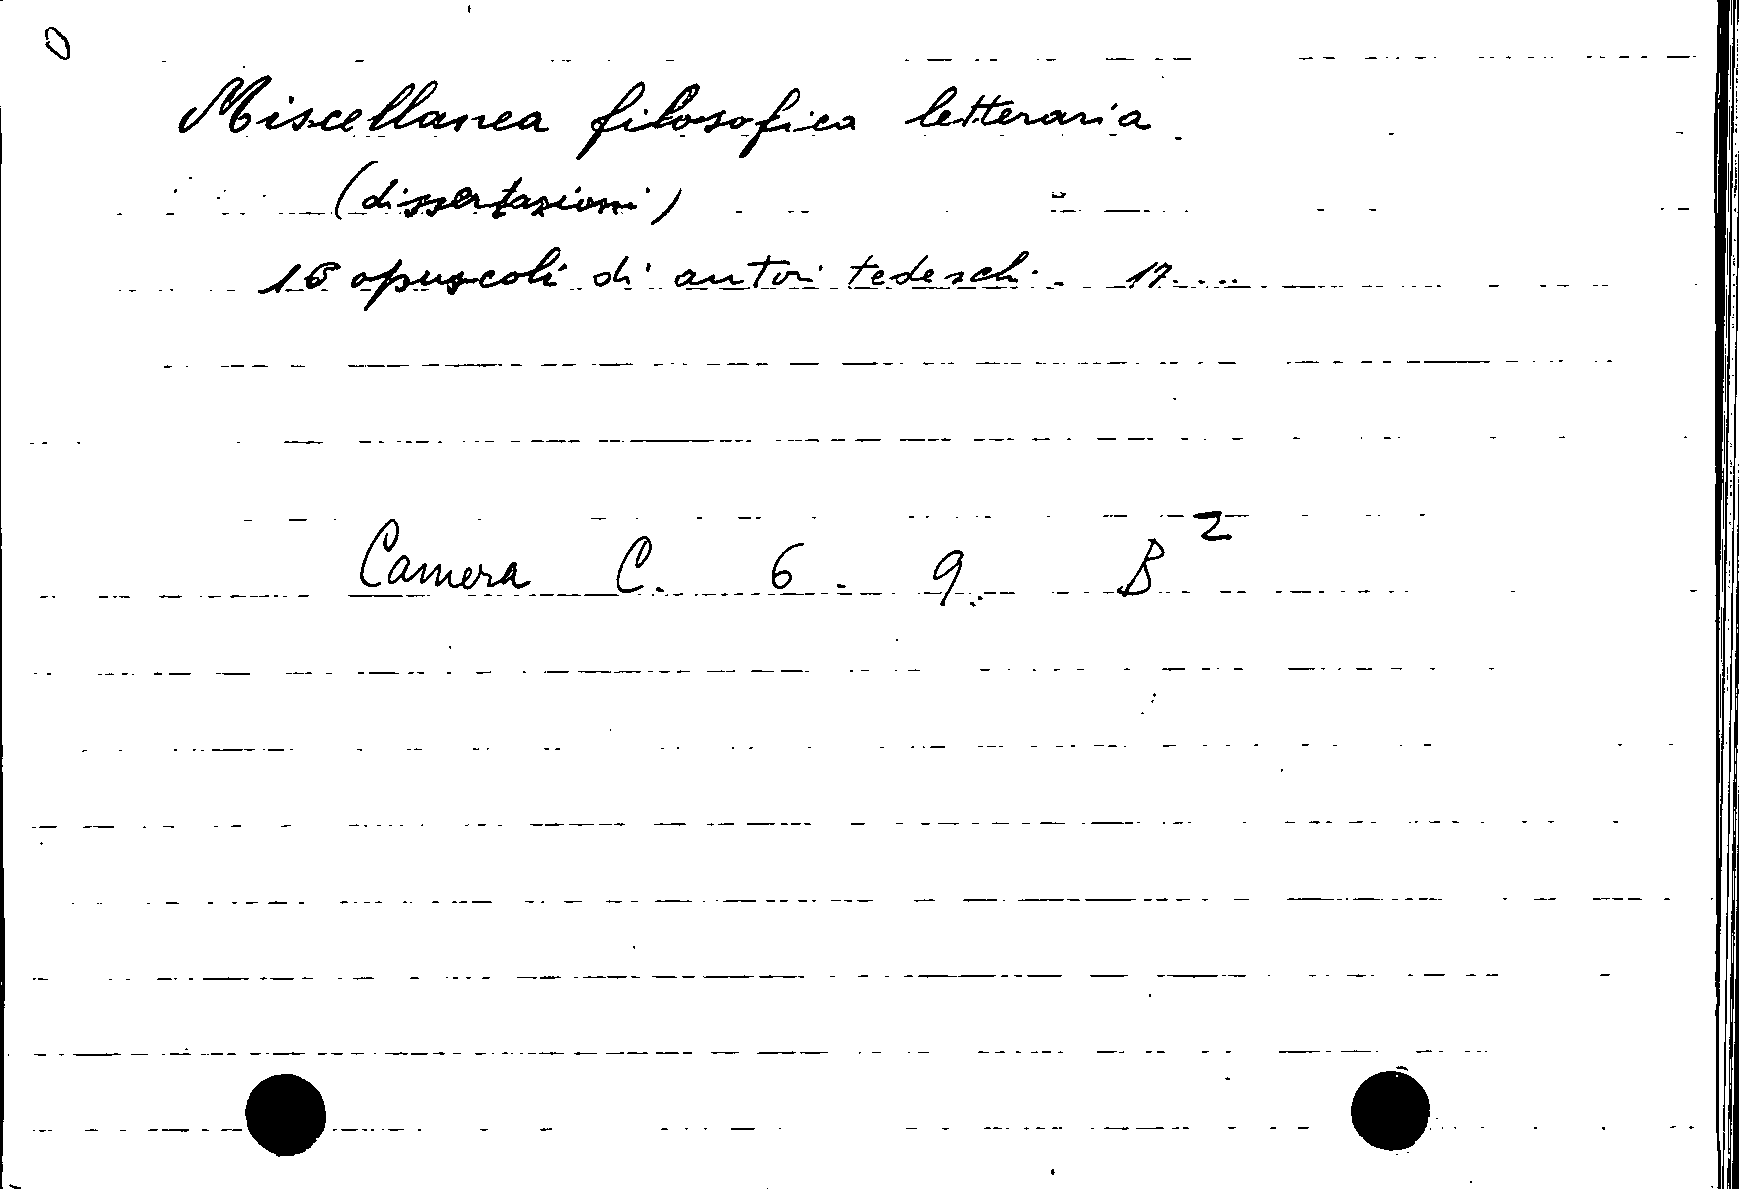 Miscellanea filosofica letteraria
(dissertazioni)
16 opuscoli di autori tedeschi. 17....
Camera C. 6. 9. B²